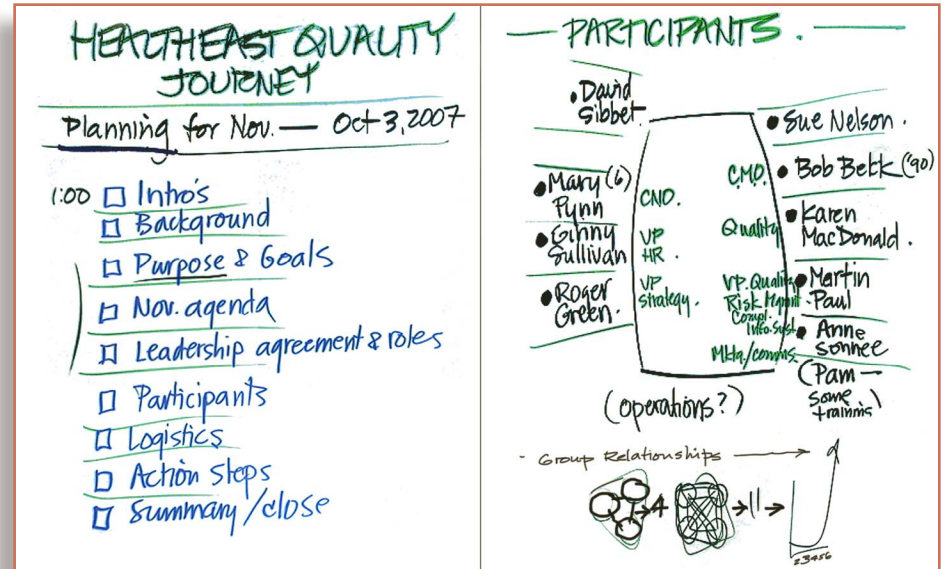 HEALTHEAST QUALITY
JOURNEY
Planning for Nov. — Oct 3, 2007
1:00 Intro's
Background
Purpose & Goals
Nov. agenda
Leadership agreement & roles
Participants
Logistics
Action Steps
Summary/close
— PARTICIPANTS. —
• David
Sibbet
• Mary (6)
Pynn
• Ginny
Sullivan
• Roger
Green.
CNO.
VP
HR.
VP
Strategy.
C.M.O.
Quality
VP. Quality
Risk Mgmt.
Compl.
Info. Syst.
Mktg./comms.
• Sue Nelson.
• Bob Beck ('90)
• Karen
MacDonald.
• Martin
Paul
• Anne
Sonnee
(Pam —
some
training)
(operations?)
- Group Relationships
4
11
2 3 4 5 6